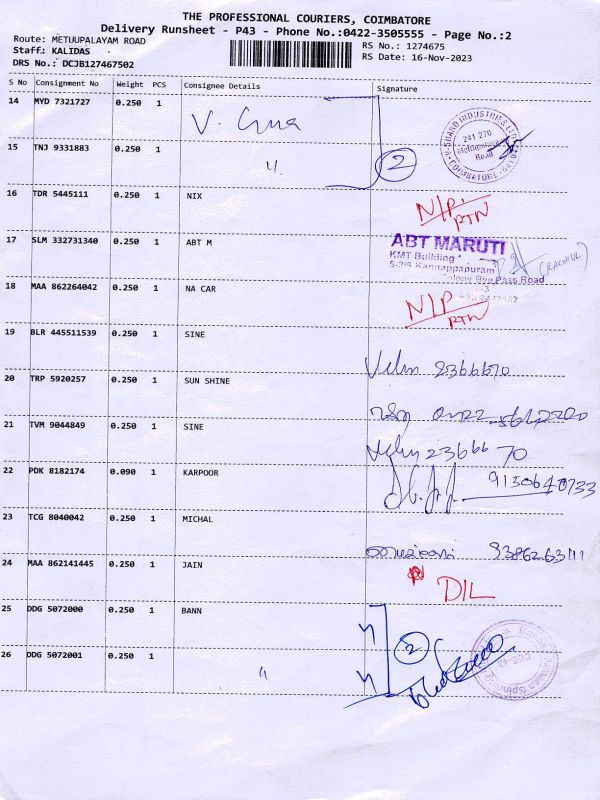 THE PROFESSIONAL COURIERS, COIMBATORE
Delivery Runsheet - P43 - Phone No.:0422-3505555 - Page No.:2
Route: METUUPALAYAM ROAD
Staff: KALIDAS
DRS No.: DCJB127467502
RS No.: 1274675
RS Date: 16-Nov-2023
S No Consignment No Weight PCS Consignee Details Signature
14 MYD 7321727 0.250 1
15 TNJ 9331883 0.250 1
2
241 270
Road
COIMBATORE
16 TDR 5445111 0.250 1 NIX
N/P.
RTN
17 SLM 332731340 0.250 1 ABT M
ABT MARUTI
KMT Building
5-2/5 Kannappapuram
Bye Pass Road
18 MAA 862264042 0.250 1 NA CAR
N/P
RTN
19 BLR 445511539 0.250 1 SINE
20 TRP 5920257 0.250 1 SUN SHINE
21 TVM 9044849 0.250 1 SINE
2366670
22 PDK 8182174 0.090 1 KARPOOR
23 TCG 8040042 0.250 1 MICHAL
24 MAA 862141445 0.250 1 JAIN
D/L
25 DDG 5072000 0.250 1 BANN
26 DDG 5072001 0.250 1
2